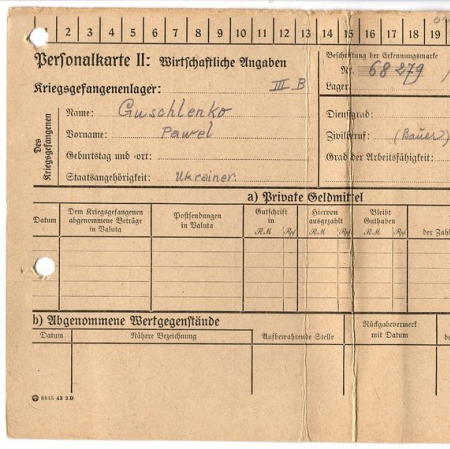 1 2 3 4 5 6 7 8 9 10 11 12 13 14 15 16 17 18 19
Personalkarte II: Wirtschaftliche Angaben
Beschriftung der Erkennungsmarke
Nr. 68279
Kriegsgefangenenlager: III B
Lager:
Des Kriegsgefangenen
Name: Guschlenko
Vorname: Pawel
Geburtstag und -ort:
Staatsangehörigkeit: Ukrainer.
Dienstgrad:
Zivilberuf: (Bauer)
Grad der Arbeitsfähigkeit:
a) Private Geldmittel
Datum
Dem Kriegsgefangenen abgenommene Beträge in Valuta
Postsendungen in Valuta
Gutschrift in
RM. Rpf.
Hiervon ausgezahlt
RM. Rpf.
Bleibt Guthaben
RM. Rpf.
der Zahl
b) Abgenommene Wertgegenstände
Datum
Nähere Bezeichnung
Aufbewahrende Stelle
Rückgabevermerk mit Datum